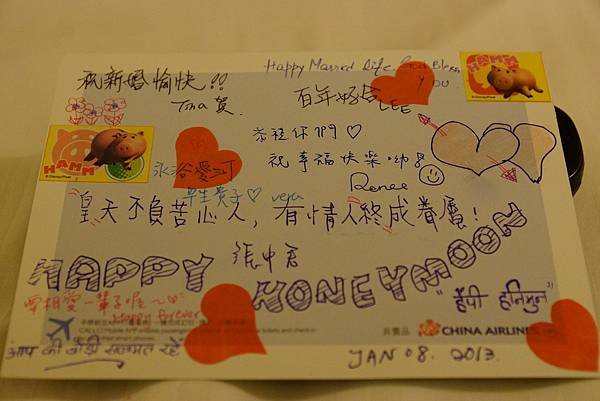 Happy Married life. God Bless
YOU
祝新婚愉快!!
Tina 賀.
百年好合
LEE
HAMM
恭禧你們♡
祝幸福快樂呦!
Renee
HAMM
永浴愛河
早生貴子♡ veja
皇天不負苦心人，有情人終成眷屬!
HAPPY
張中君
HONEYMOON
"हैपी हनिमुन"
要相愛一輩子喔~
Happy forever
非賣品
CHINA AIRLINES
आप की जोड़ी सलामत रहे
JAN 08. 2013.